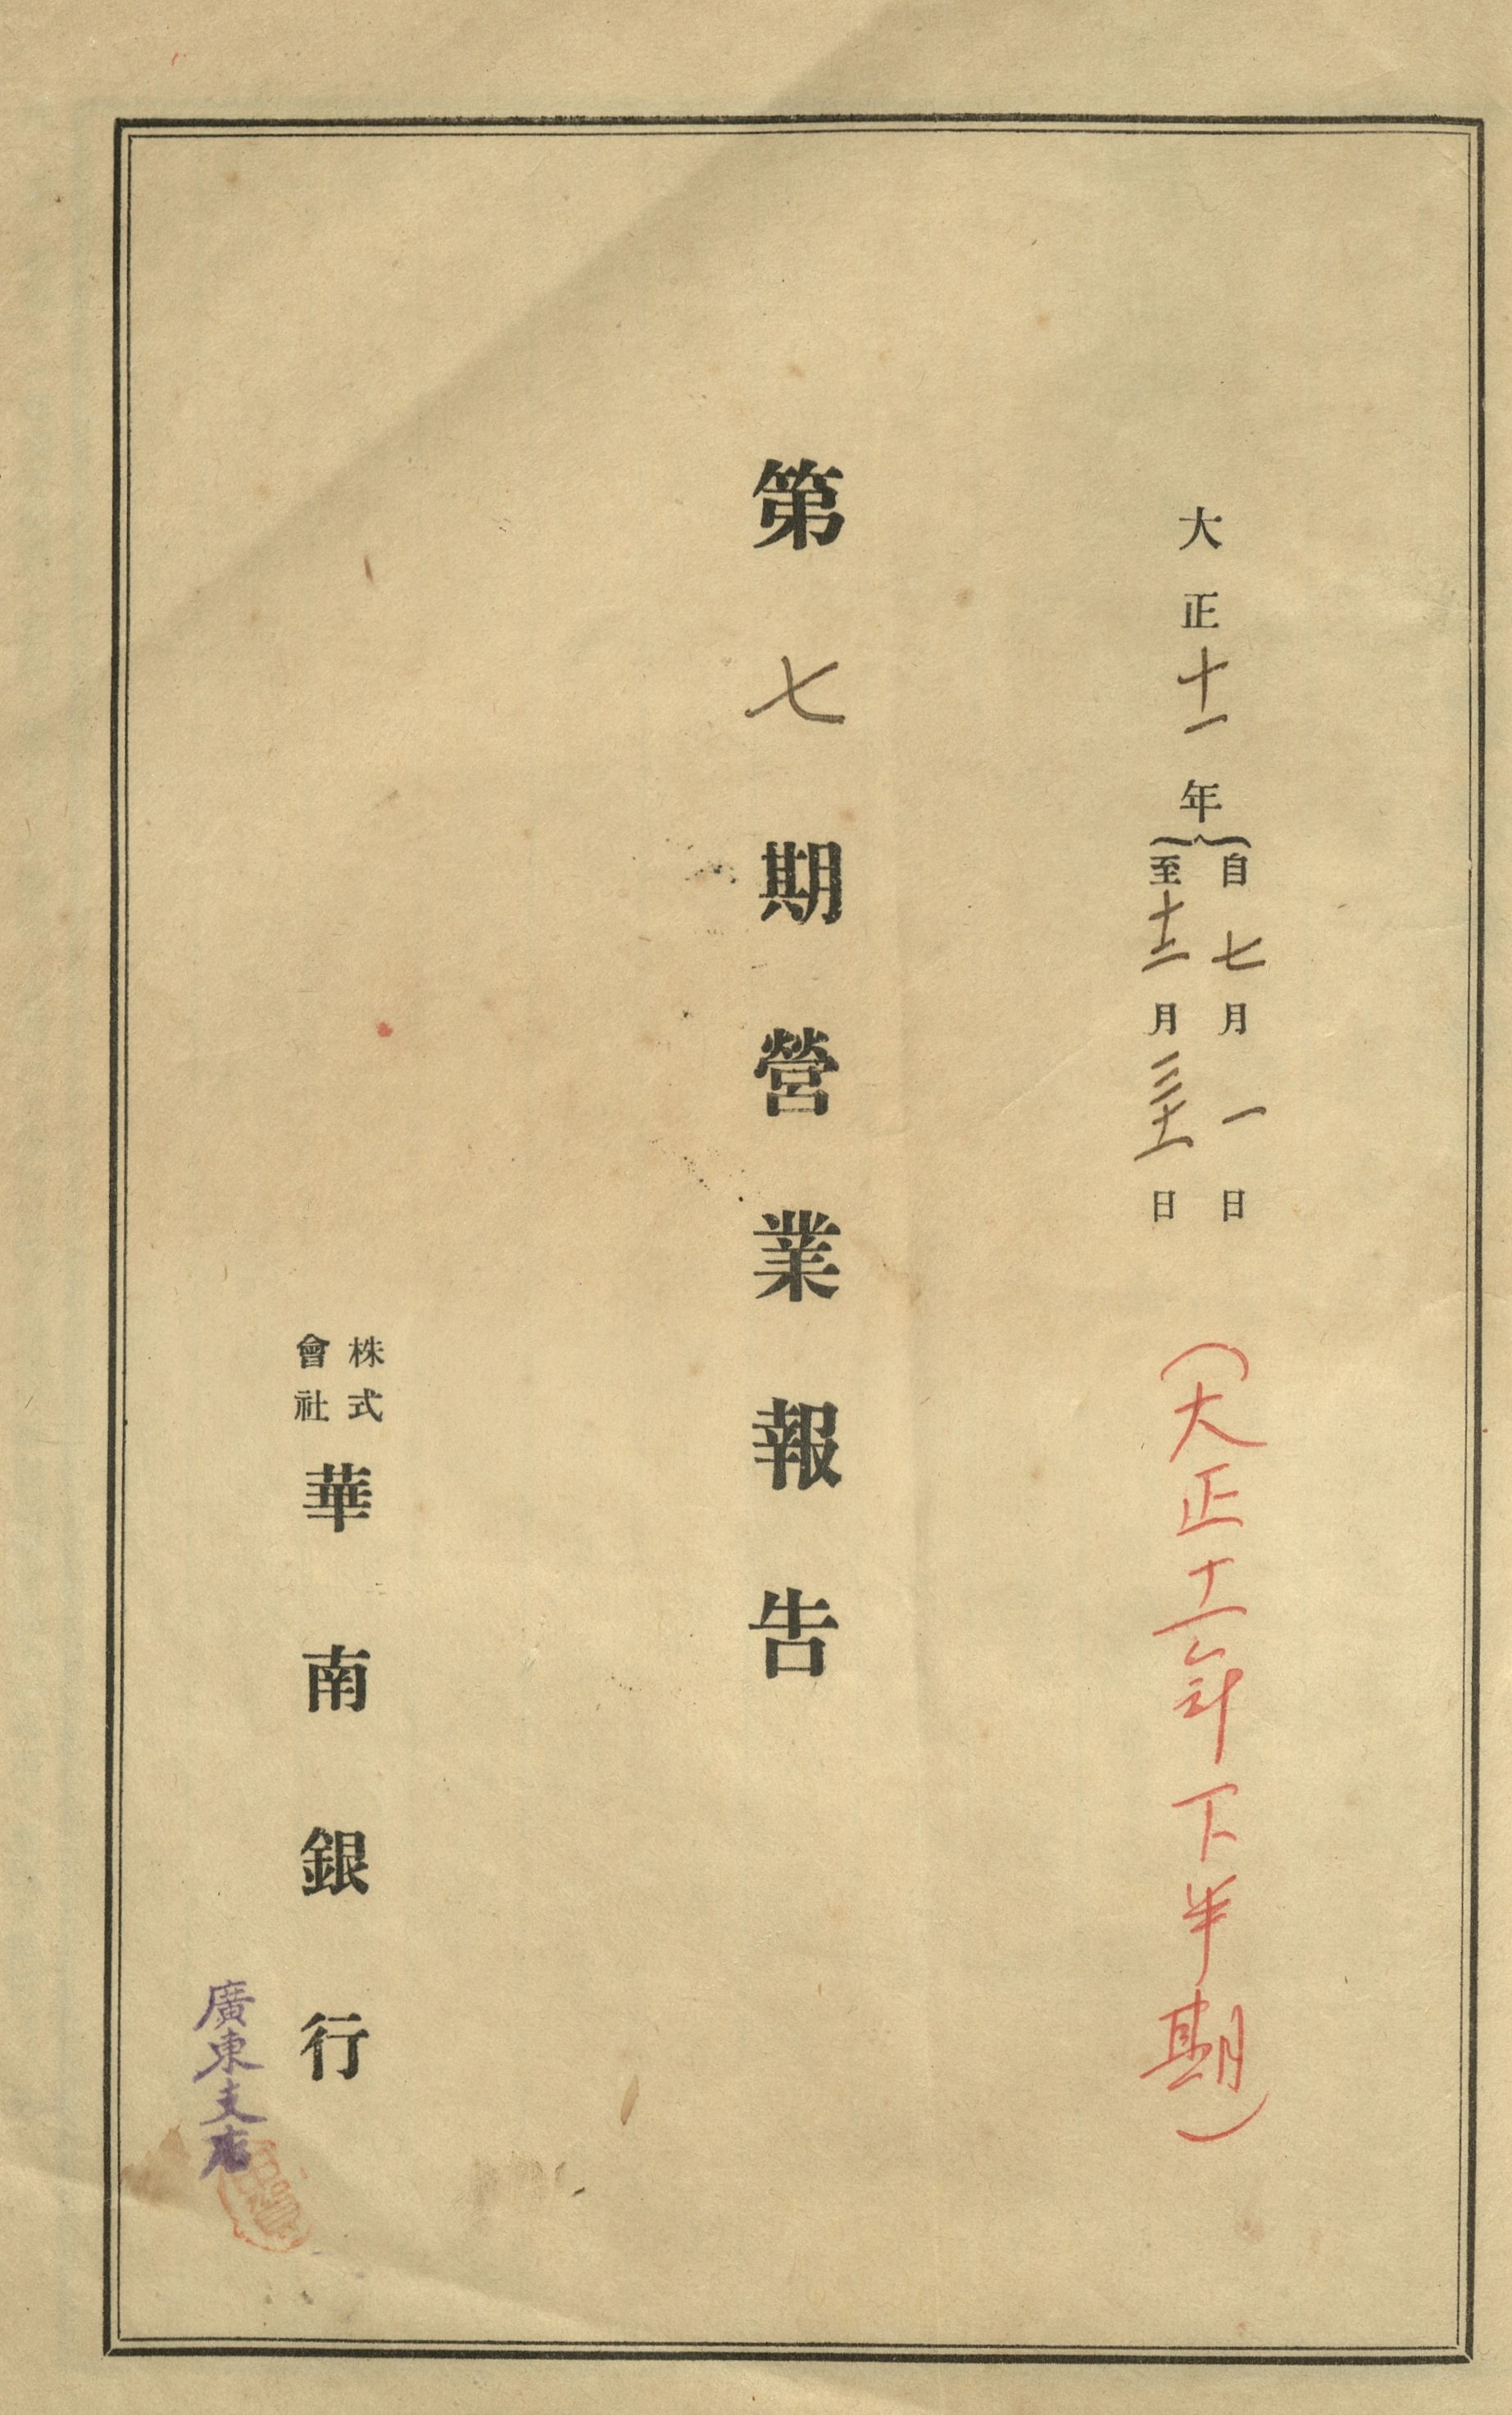 大正十一年
自七月一日
至十二月三十一日
(大正十一年下半期)
第七期營業報告
株式
會社
華南銀行
廣東支店